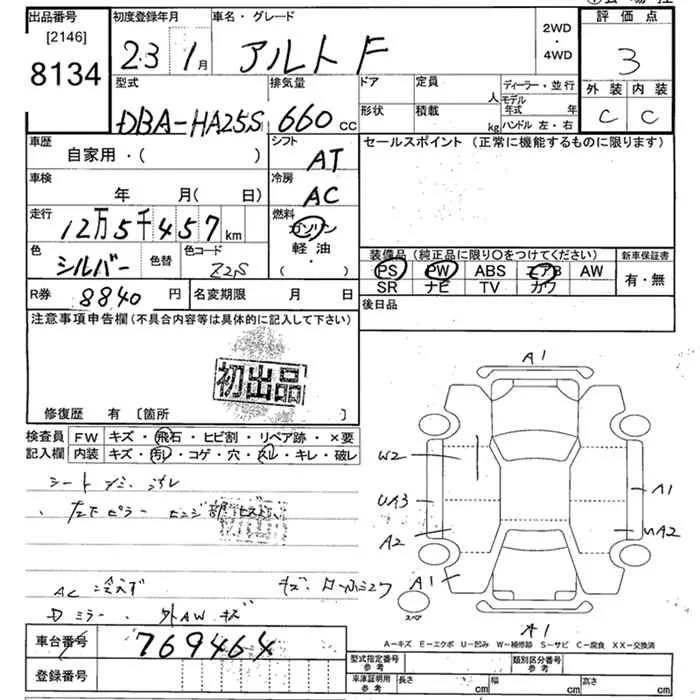 出品番号
[2146]
8134
初度登録年月
23 1月
車名・グレード
アルト F
2WD
4WD
評価点
3
外装 内装
C C
型式
DBA-HA25S
排気量
660 cc
ドア 定員 人
形状 積載 kg
ディーラー・並行
モデル年式 年
ハンドル 左・右
車歴
自家用・( )
シフト
AT
セールスポイント(正常に機能するものに限ります)
車検
年 月( 日)
冷房
AC
走行
12万5千457km
燃料
ガソリン
軽油
( )
色
シルバー
色替
色コード
Z2S
装備品(純正品に限り〇をつけてください)
PS PW ABS エアB AW
SR ナビ TV カワ
新車保証書
有・無
R券 8840円
名変期限 月 日
後日品
注意事項申告欄(不具合内容等は具体的に記入して下さい)
初出品
修復歴 有 [箇所 ]
検査員記入欄
FW キズ・飛石・ヒビ割・リペア跡・×要
内装 キズ・汚レ・コゲ・穴・スレ・キレ・破レ
A1
W2
UA3
A1
A2
UA2
A1
スペア
A1
AC 冷えず
Dミラー、外AWキズ
A=キズ E=エクボ U=凹み W=補修跡 S=サビ C=腐食 XX=交換済
車台番号 769464
登録番号
型式指定番号 参考
類別区分番号 参考
車庫証明用 参考
長さ cm 幅 cm 高さ cm